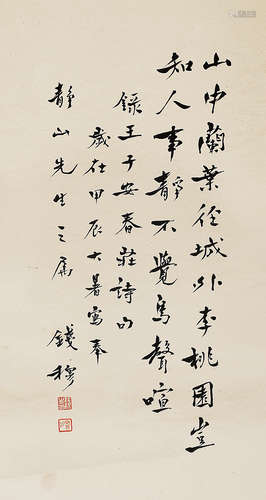 山中蘭葉徑城外李桃園豈
知人事靜不覺鳥聲喧
錄王子安春莊詩句
歲在甲辰大暑寫奉
靜山先生之屬
錢穆